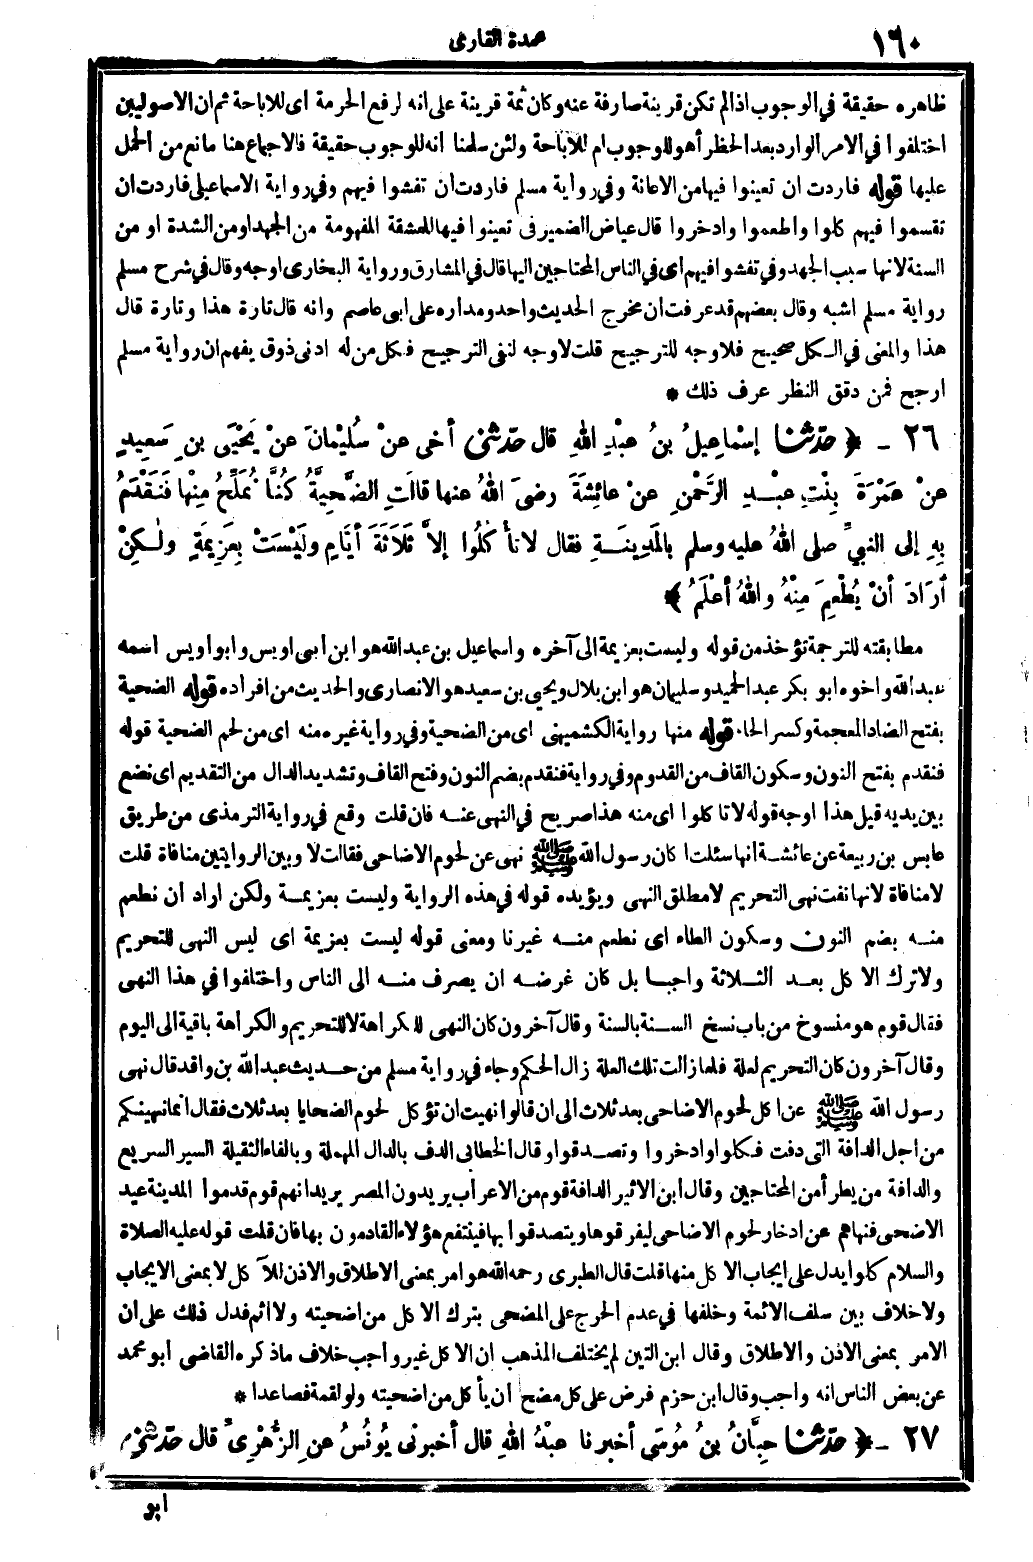 ١٦٠
عمدة القارى
ظاهره حقيقة في الوجوب اذا لم تكن قرينة صارفة عنه وكان ثمة قرينة على انه لرفع الحرمة اى للاباحة ثم ان الاصوليين
اختلفوا في الامر الوارد بعد الحظر أهو للوجوب ام للاباحة ولئن سلمنا انه للوجوب حقيقة فالاجماع هنا مانع من الحمل
عليها قوله فاردت ان تعينوا فيها من الاعانة وفي رواية مسلم فاردت ان تفشوا فيهم وفي رواية الاسماعيلى فاردت ان
تقسموا فيهم كلوا واطعموا وادخروا قال عياض الضمير فى تعينوا فيها للمشقة المفهومة من الجهد او من الشدة او من
السنة لانها سبب الجهد وفي تفشوا فيهم اى في الناس المحتاجين اليها قال في المشارق ورواية البخارى اوجه وقال في شرح مسلم
رواية مسلم اشبه وقال بعضهم قد عرفت ان مخرج الحديث واحد ومداره على ابى عاصم وانه قال تارة هذا وتارة قال
هذا والمعنى في الكل صحيح فلا وجه للترجيح قلت لا وجه لنفى الترجيح فكل من له ادنى ذوق يفهم ان رواية مسلم
ارجح فمن دقق النظر عرف ذلك *
٢٦ - ﴿ حَدَّثنا إسْماعِيلُ بنُ عبْدِ اللهِ قال حَدَّثنى أخى عنْ سُلَيْمانَ عنْ يَحْيَى بنِ سَعِيدٍ
عنْ عَمْرَةَ بِنْتِ عبْدِ الرَّحْمنِ عنْ عائِشَةَ رضىَ اللهُ عنها قالَتِ الضَّحِيَّةُ كُنَّا نُمَلِّحُ مِنْها فَنَقْدَمُ
بِهِ إلى النبيِّ صلى اللهُ عليه وسلم بالمَدِينَةِ فقال لا تأْكُلُوا إلاَّ ثَلاَثَةَ أيَّامٍ ولَيْسَتْ بِعَزِيمَةٍ ولكِنْ
أرَادَ أنْ يُطْعِمَ مِنْهُ واللهُ أعْلَمُ ﴾
مطابقته للترجمة تؤخذ من قوله وليست بعزيمة الى آخره واسماعيل بن عبد الله هو ابن أبى اويس وابو اويس اسمه
عبد الله واخوه ابو بكر عبد الحميد وسليمان هو ابن بلال ويحيى بن سعيد هو الانصارى والحديث من افراده قوله الضحية
بفتح الضاد المعجمة وكسر الحاء قوله منها رواية الكشميهنى اى من الضحية وفي رواية غيره منه اى من لحم الضحية قوله
فنقدم بفتح النون وسكون القاف من القدوم وفي رواية فنقدم بضم النون وفتح القاف وتشديد الدال من التقديم اى نضع
بين يديه قيل هذا اوجه قوله لا تاكلوا اى منه هذا صريح في النهى عنه فان قلت وقع في رواية الترمذى من طريق
عابس بن ربيعة عن عائشة انها سئلت اكان رسول الله ﷺ نهى عن لحوم الاضاحى فقالت لا وبين الروايتين منافاة قلت
لا منافاة لانها نفت نهى التحريم لا مطلق النهى ويؤيده قوله في هذه الرواية وليست بعزيمة ولكن اراد ان نطعم
منه بضم النون وسكون الطاء اى نطعم منه غيرنا ومعنى قوله ليست بعزيمة اى ليس النهى للتحريم
ولا ترك الاكل بعد الثلاثة واجبا بل كان غرضه ان يصرف منه الى الناس واختلفوا في هذا النهى
فقال قوم هو منسوخ من باب نسخ السنة بالسنة وقال آخرون كان النهى للكراهة لا للتحريم والكراهة باقية الى اليوم
وقال آخرون كان التحريم لعلة فلما زالت تلك العلة زال الحكم وجاء في رواية مسلم من حديث عبد الله بن واقد قال نهى
رسول الله ﷺ عن اكل لحوم الاضاحى بعد ثلاث الى ان قالوا نهيت ان تؤكل لحوم الضحايا بعد ثلاث فقال انما نهيتكم
من اجل الدافة التى دفت فكلوا وادخروا وتصدقوا وقال الخطابى الدف بالدال المهملة وبالفاء الثقيلة السير السريع
والدافة من يطرأ من المحتاجين وقال ابن الاثير الدافة قوم من الاعراب يريدون المصر يريد انهم قوم قدموا المدينة عيد
الاضحى فنهاهم عن ادخار لحوم الاضاحى ليفرقوها ويتصدقوا بها فينتفع هؤلاء القادمون بها فان قلت قوله عليه الصلاة
والسلام كلوا يدل على ايجاب الاكل منها قلت قال الطبرى رحمه الله هو امر بمعنى الاطلاق والاذن للآكل لا بمعنى الايجاب
ولا خلاف بين سلف الائمة وخلفها في عدم الحرج على المضحى بترك الاكل من اضحيته ولا اثم فدل ذلك على ان
الامر بمعنى الاذن والاطلاق وقال ابن التين لم يختلف المذهب ان الاكل غير واجب خلاف ما ذكره القاضى أبو محمد
عن بعض الناس انه واجب وقال ابن حزم فرض على كل مضح أن يأكل من اضحيته ولو لقمة فصاعدا *
٢٧ - ﴿ حَدَّثنا حِبَّانُ بنُ مُوسَى أخبرنا عبْدُ اللهِ قال أخبرنى يُونُسُ عنِ الزُّهْرِىِّ قال حَدَّثنى
ابو